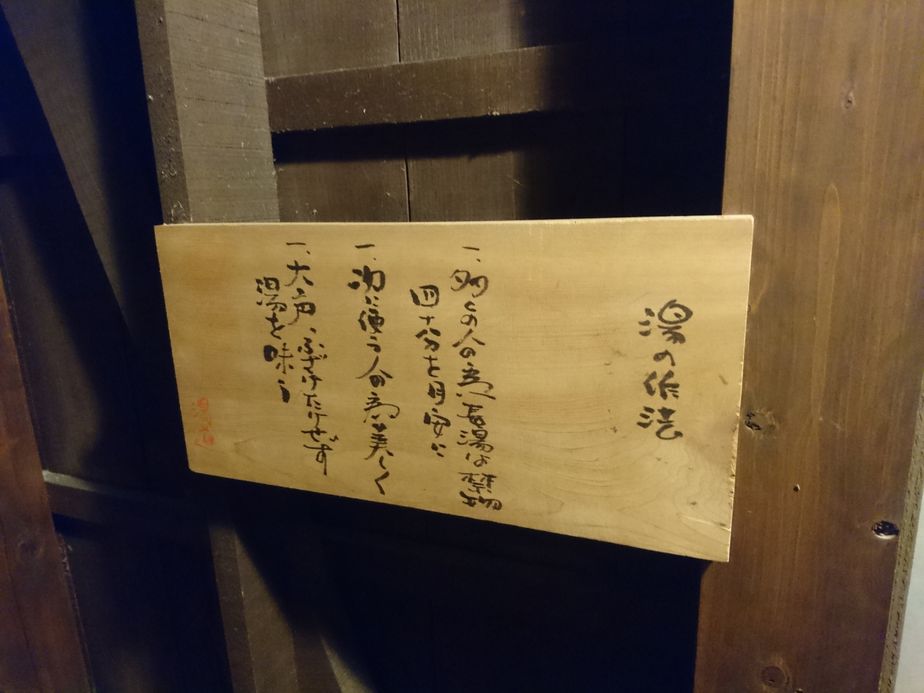 湯の作法
一、多くの人の為長湯は禁物
四十分を目安に
一、次に使う人の為美しく
一、大声、ふざけたりせず
湯を味う